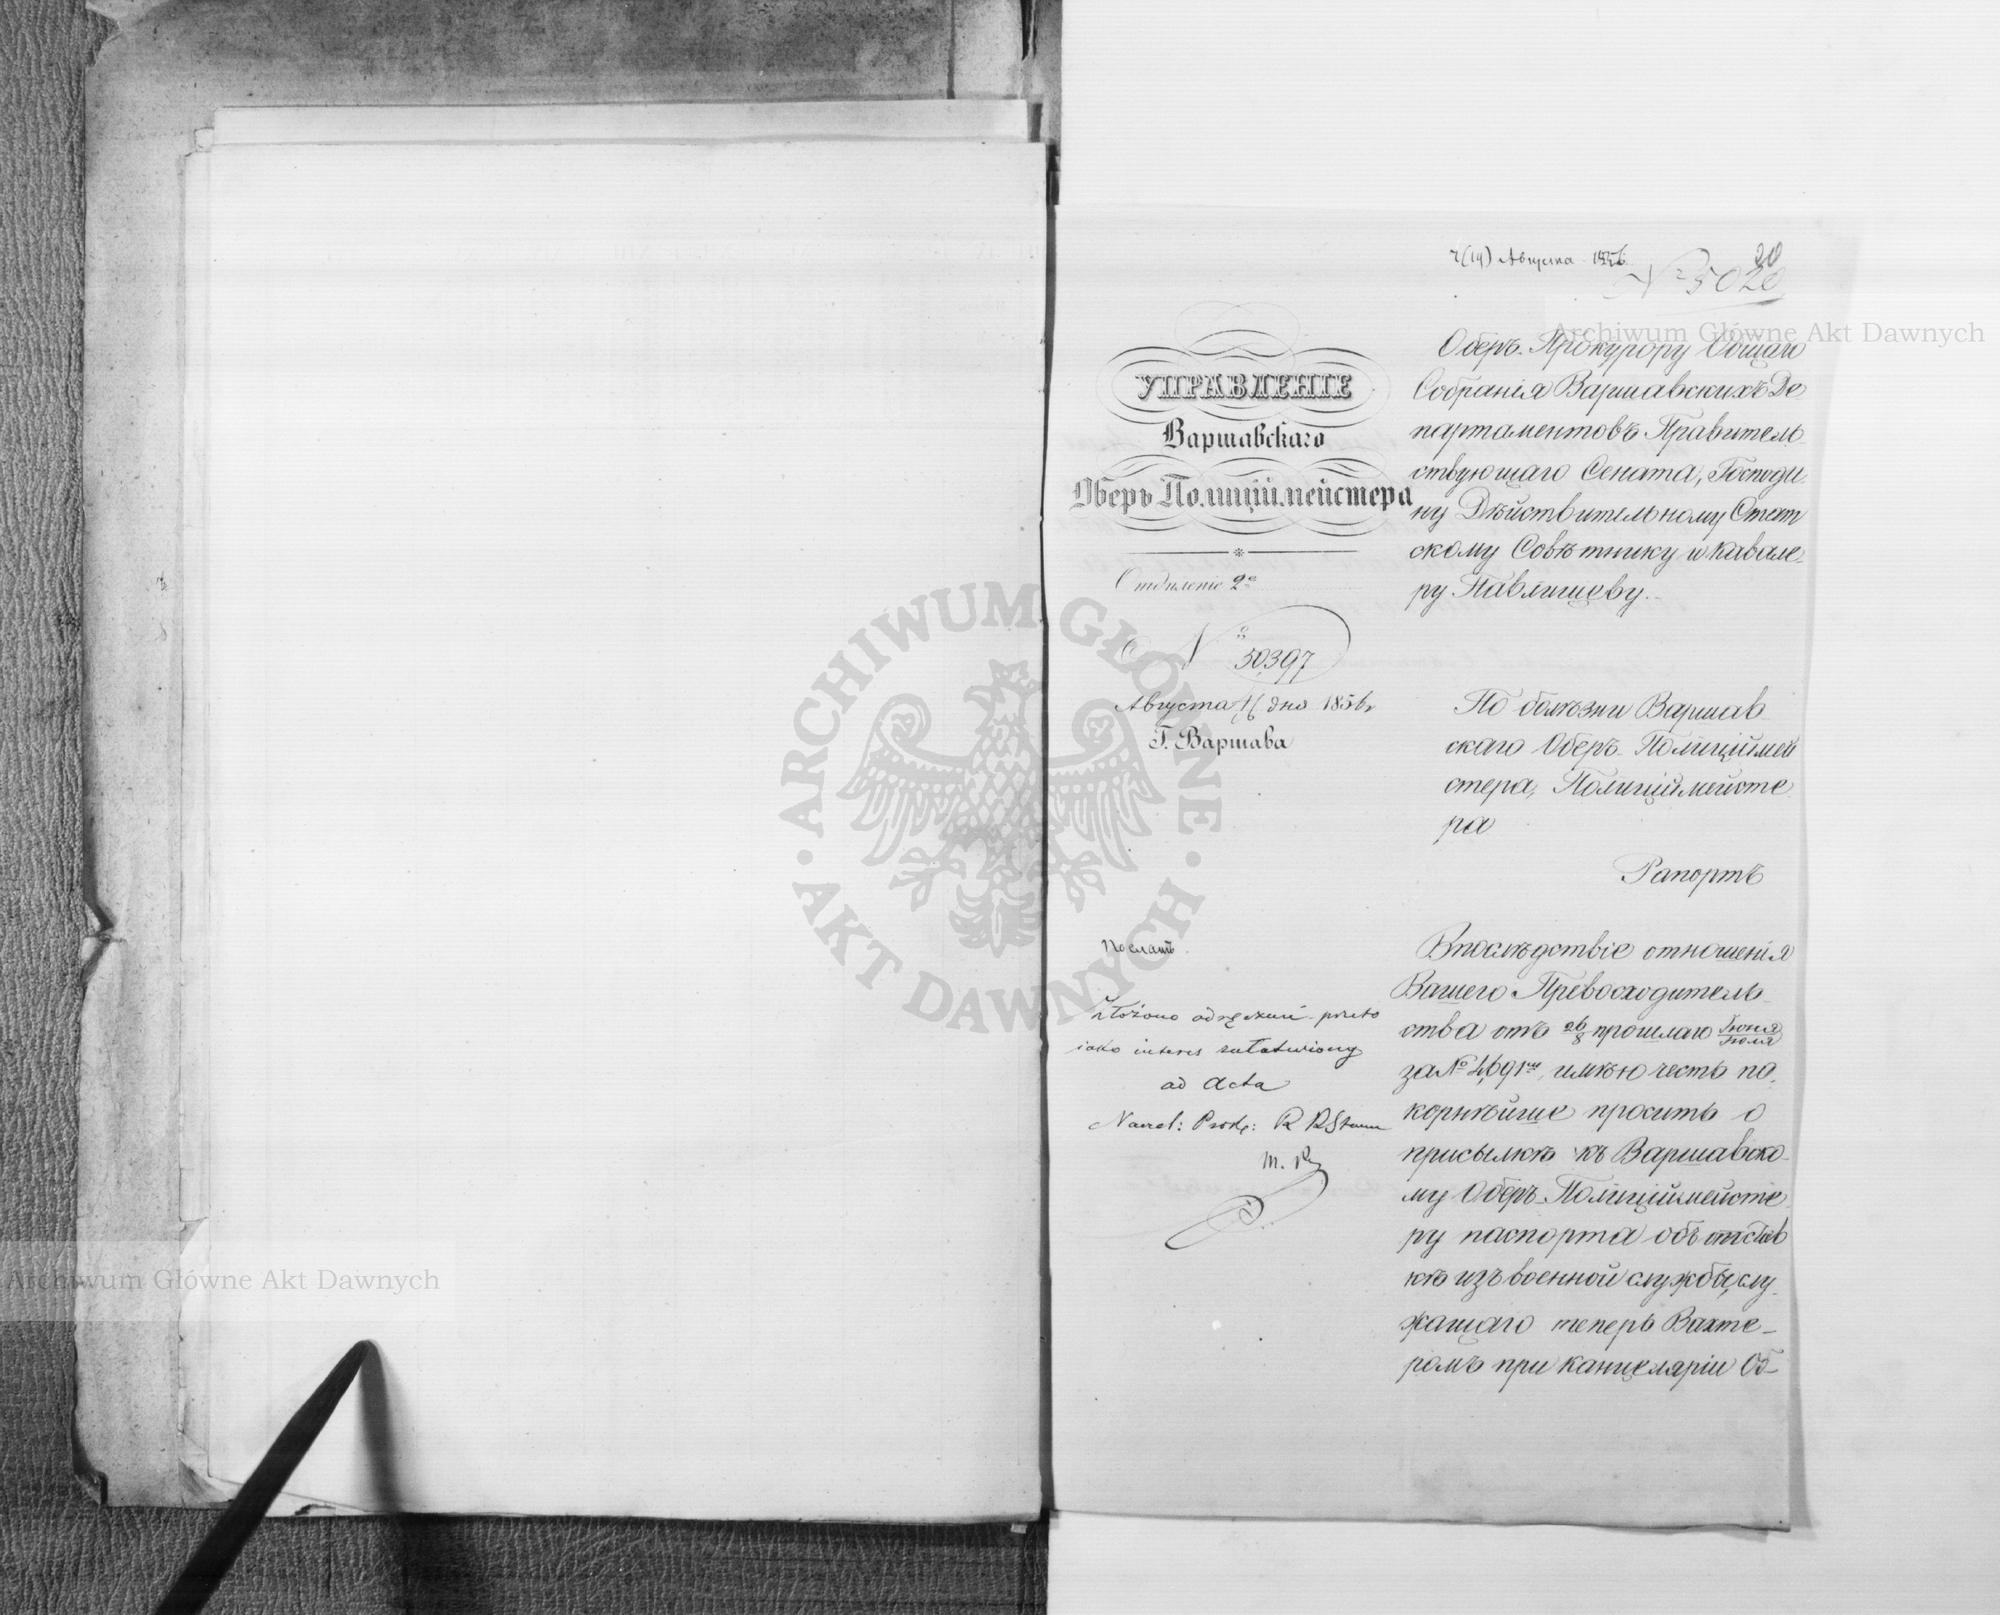 20
7(19) Августа 1856.
№ 5020
УПРАВЛЕНІЕ
Варшавскаго
Оберъ Полиціймейстера
Отдѣленіе 2е
№
50,397
Августа 4/16 дня 1856 г
Г. Варшава
Оберъ-Прокурору Общаго
Собранія Варшавскихъ Де-
партаментовъ Правитель-
ствующаго Сената, Господи-
ну Дѣйствительному Стат-
скому Совѣтнику и Кавале-
ру Павлищеву.
По болѣзни Варшав-
скаго Оберъ-Полиціймей-
стера, Полиціймейсте-
ра
Рапортъ
Впослѣдствіе отношенія
Вашего Превосходитель-
ства отъ 26/8 прошлаго Іюня/Іюля
за № 4,691мъ, имѣю честь по-
корнѣйше просить о
присылкѣ къ Варшавско-
му Оберъ-Полиціймейсте-
ру паспорта объ отстав-
кѣ изъ военной службы, слу-
жащаго теперь Вахте-
ромъ при канцеляріи Об-
послать
Złożono odręcznie przeto
iako interes załatwiony
ad Acta
Naczel: Prok: R R Stanu
ARCHIWUM GŁÓWNE
AKT DAWNYCH
Archiwum Główne Akt Dawnych
Archiwum Główne Akt Dawnych